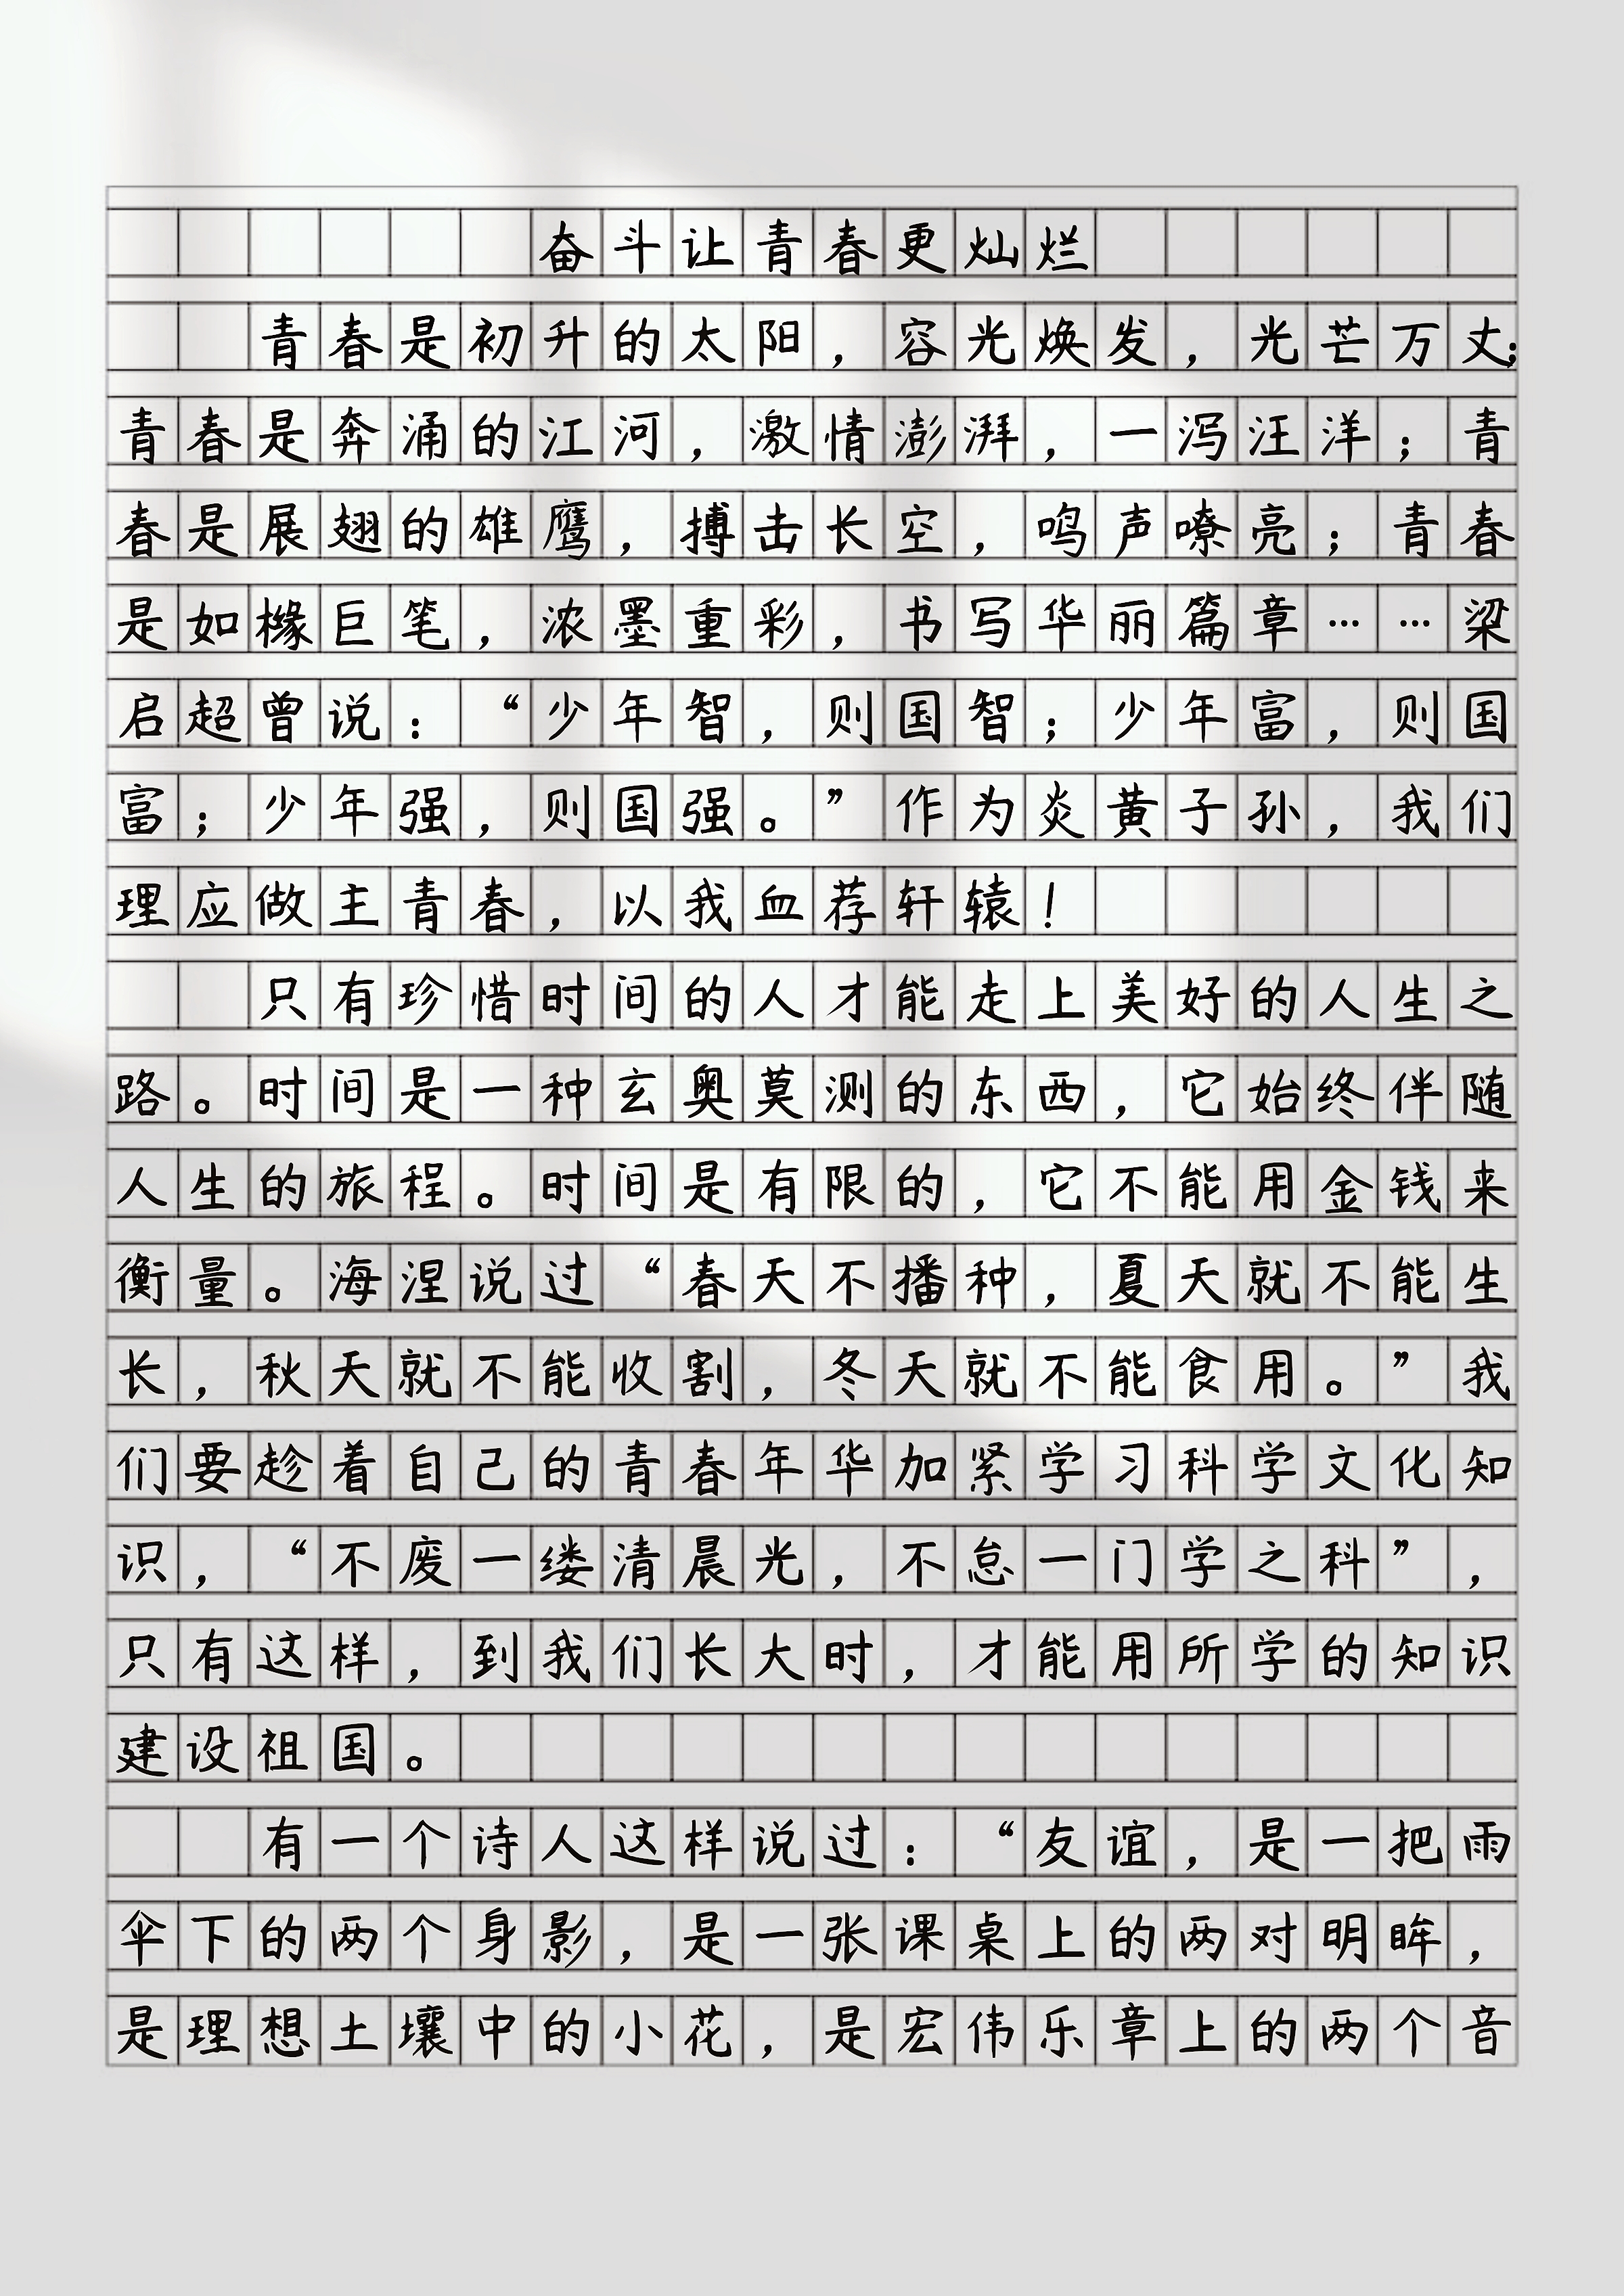 奋斗让青春更灿烂
青春是初升的太阳，容光焕发，光芒万丈；
青春是奔涌的江河，激情澎湃，一泻汪洋；青
春是展翅的雄鹰，搏击长空，鸣声嘹亮；青春
是如椽巨笔，浓墨重彩，书写华丽篇章……梁
启超曾说：“少年智，则国智；少年富，则国
富；少年强，则国强。”作为炎黄子孙，我们
理应做主青春，以我血荐轩辕！
只有珍惜时间的人才能走上美好的人生之
路。时间是一种玄奥莫测的东西，它始终伴随
人生的旅程。时间是有限的，它不能用金钱来
衡量。海涅说过“春天不播种，夏天就不能生
长，秋天就不能收割，冬天就不能食用。”我
们要趁着自己的青春年华加紧学习科学文化知
识，“不废一缕清晨光，不怠一门学之科”，
只有这样，到我们长大时，才能用所学的知识
建设祖国。
有一个诗人这样说过：“友谊，是一把雨
伞下的两个身影，是一张课桌上的两对明眸，
是理想土壤中的小花，是宏伟乐章上的两个音